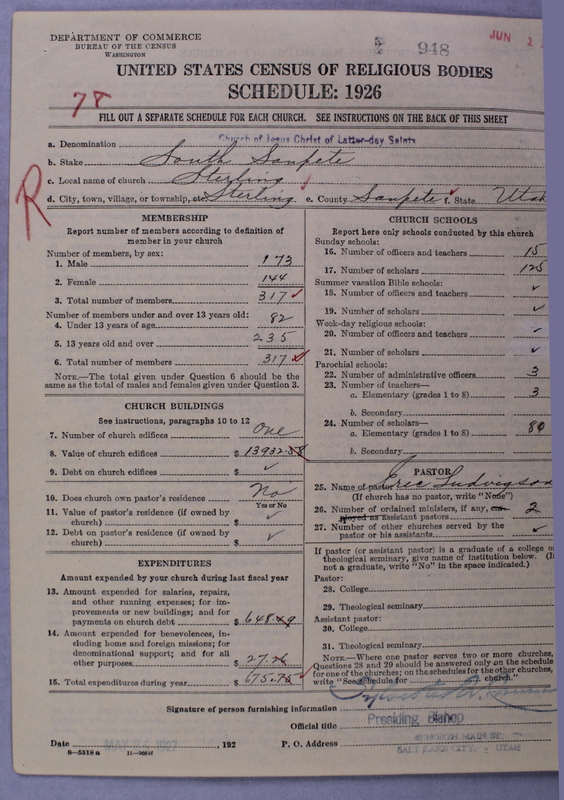 DEPARTMENT OF COMMERCE
BUREAU OF THE CENSUS
WASHINGTON
948
JUN 2
UNITED STATES CENSUS OF RELIGIOUS BODIES
SCHEDULE: 1926
78
FILL OUT A SEPARATE SCHEDULE FOR EACH CHURCH. SEE INSTRUCTIONS ON THE BACK OF THIS SHEET
a. Denomination Church of Jesus Christ of Latter-day Saints
b. Stake South Sanpete
c. Local name of church Sterling
d. City, town, village, or township, etc. Sterling e. County Sanpete f. State Utah
R
MEMBERSHIP
Report number of members according to definition of
member in your church
Number of members, by sex:
1. Male 173
2. Female 144
3. Total number of members 317
Number of members under and over 13 years old:
4. Under 13 years of age 82
5. 13 years old and over 235
6. Total number of members 317
NOTE.—The total given under Question 6 should be the
same as the total of males and females given under Question 3.
CHURCH BUILDINGS
See instructions, paragraphs 10 to 12
7. Number of church edifices One
8. Value of church edifices $ 13932.58
9. Debt on church edifices $
10. Does church own pastor's residence No
Yes or No
11. Value of pastor's residence (if owned by
church) $
12. Debt on pastor's residence (if owned by
church) $
EXPENDITURES
Amount expended by your church during last fiscal year
13. Amount expended for salaries, repairs,
and other running expenses; for im-
provements or new buildings; and for
payments on church debt $ 648.49
14. Amount expended for benevolences, in-
cluding home and foreign missions; for
denominational support; and for all
other purposes $ 27.26
15. Total expenditures during year $ 675.75
CHURCH SCHOOLS
Report here only schools conducted by this church
Sunday schools:
16. Number of officers and teachers 15
17. Number of scholars 125
Summer vacation Bible schools:
18. Number of officers and teachers
19. Number of scholars
Week-day religious schools:
20. Number of officers and teachers
21. Number of scholars
Parochial schools:
22. Number of administrative officers 3
23. Number of teachers—
a. Elementary (grades 1 to 8) 3
b. Secondary
24. Number of scholars—
a. Elementary (grades 1 to 8) 80
b. Secondary
PASTOR
25. Name of pastor Eric Ludvigson
(If church has no pastor, write "None")
26. Number of ordained ministers, if any, em-
ployed as assistant pastors 2
27. Number of other churches served by the
pastor or his assistants
If pastor (or assistant pastor) is a graduate of a college or
theological seminary, give name of institution below. (If
not a graduate, write "No" in the space indicated.)
Pastor:
28. College
29. Theological seminary
Assistant pastor:
30. College
31. Theological seminary
NOTE.—Where one pastor serves two or more churches,
Questions 28 and 29 should be answered only on the schedule
for one of the churches; on the schedules for the other churches,
write "See schedule for church."
Signature of person furnishing information
Official title Presiding Bishop
Date , 192 P. O. Address 40 NORTH MAIN ST.
SALT LAKE CITY, UTAH
8—5518a